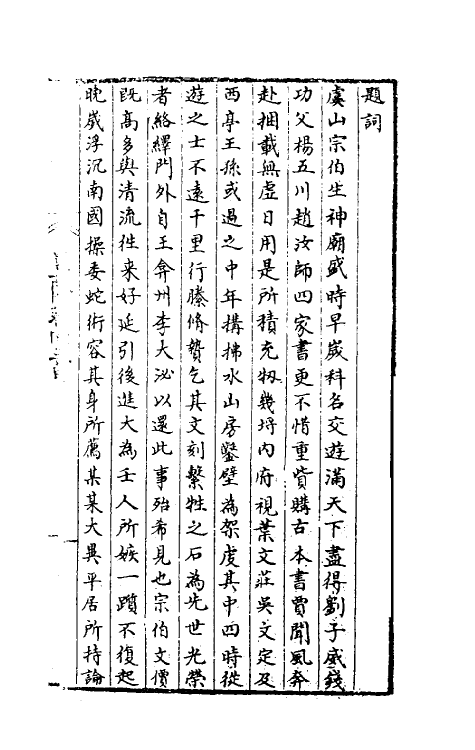 題詞
虞山宗伯生神廟盛時早歲科名交遊滿天下盡得劉子威錢
功父楊五川趙汝師四家書更不惜重貲購古本書賈聞風奔
赴捆載無虛日用是所積充牣幾埒內府視葉文莊吳文定及
西亭王孫或過之中年搆拂水山房鑿壁為架庋其中四時從
遊之士不遠千里行縢脩贄乞其文刻繫牲之石為先世光榮
者絡繹門外自王弇州李大泌以還此事殆希見也宗伯文價
既高多與清流往來好延引後進大為壬人所嫉一躓不復起
晚歲浮沉南國操委蛇術容其身所薦某某大異平居所持論